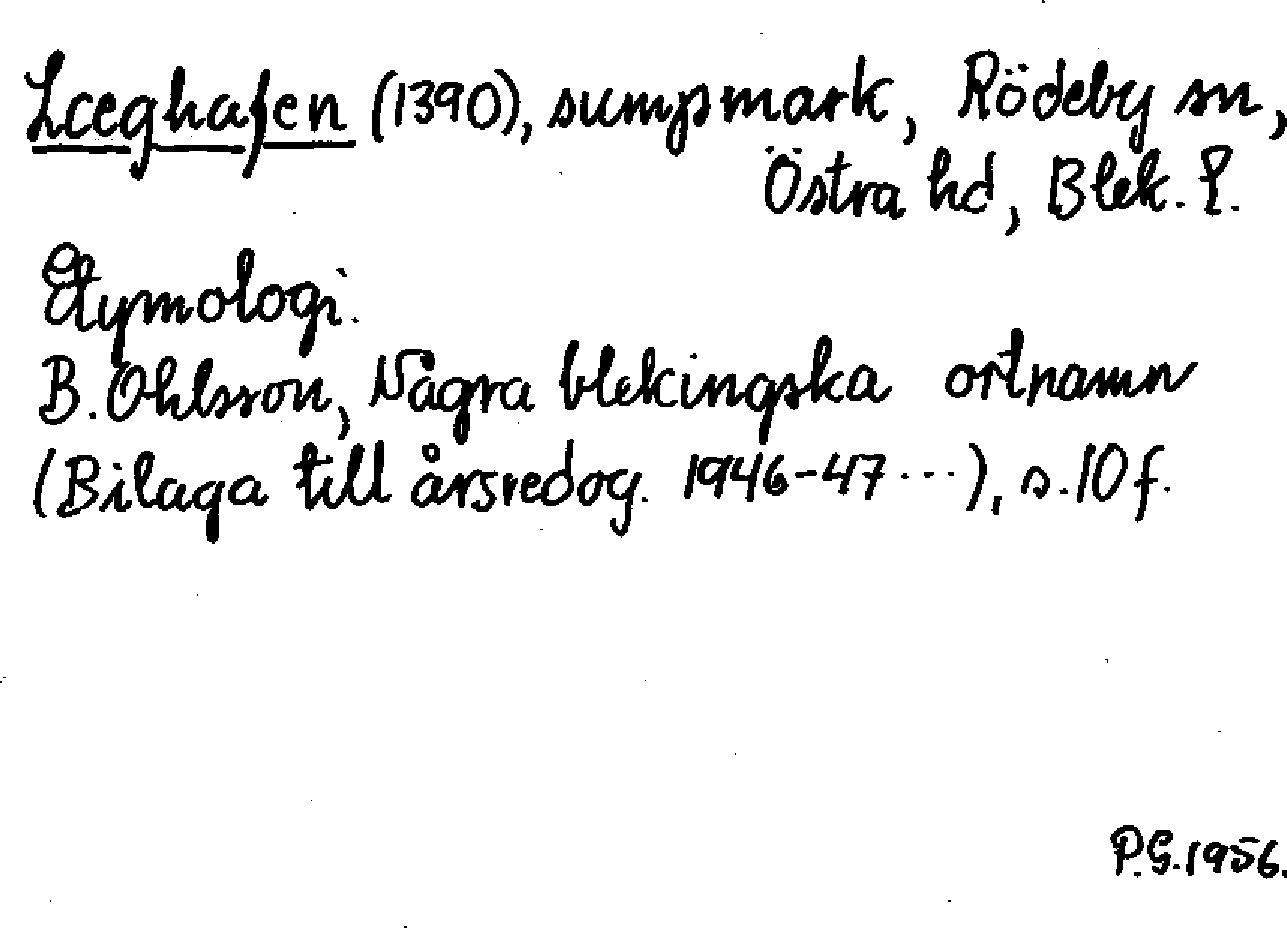 Læghafen (1390), sumpmark, Rödeby sn,
Östra hd, Blek. l.
Etymologi.
B. Ohlsson, Några blekingska ortnamn
(Bilaga till årsredog. 1946-47...), s. 10 f.
P.G. 1956.